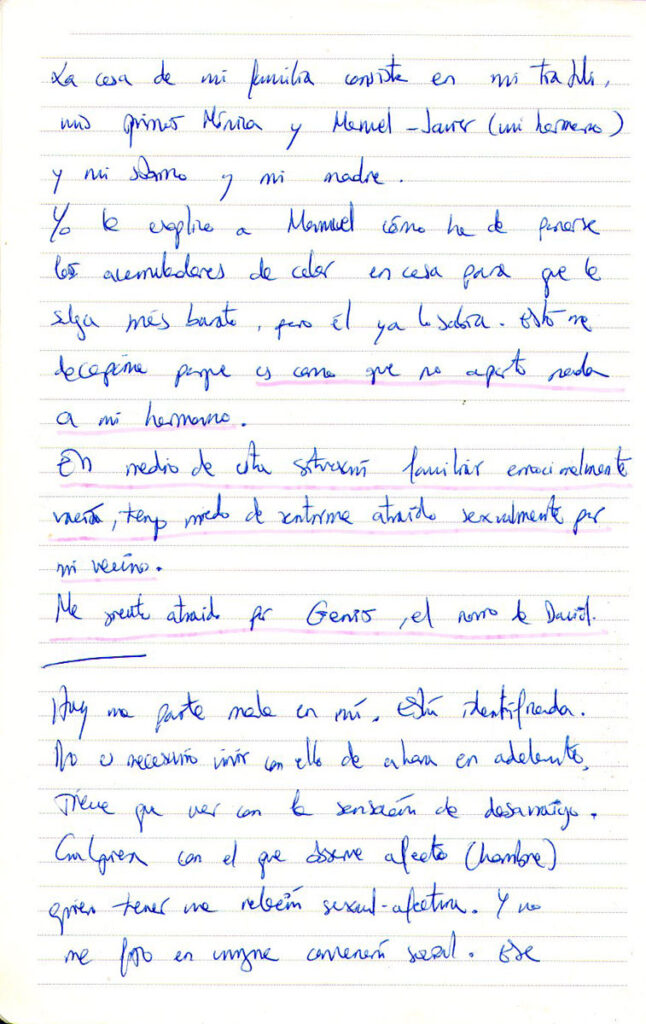 La casa de mi familia consiste en mi
mis primos Mónica y Manuel-Javier (mi hermano)
y mi y mi madre.
Yo le explico a Manuel cómo ha de ponerse
los acumuladores de calor en casa para que le
salga más barato, pero él ya lo sabía. Esto me
decepciona porque es como que no aporto nada
a mi hermano.
En medio de esta situación familiar emocionalmente
vacía, tengo miedo de sentirme atraido sexualmente por
mi vecino.
Me siento atraido por , el novio de David.
Hay una parte mala en mí. Está identificada.
No es necesario vivir con ello de ahora en adelante.
Tiene que ver con la sensación de desarraigo.
Cualquiera con el que observe afecto (hombre)
quiero tener una relación sexual-afectiva. Y no
me fijo en ninguna convención social. Ese